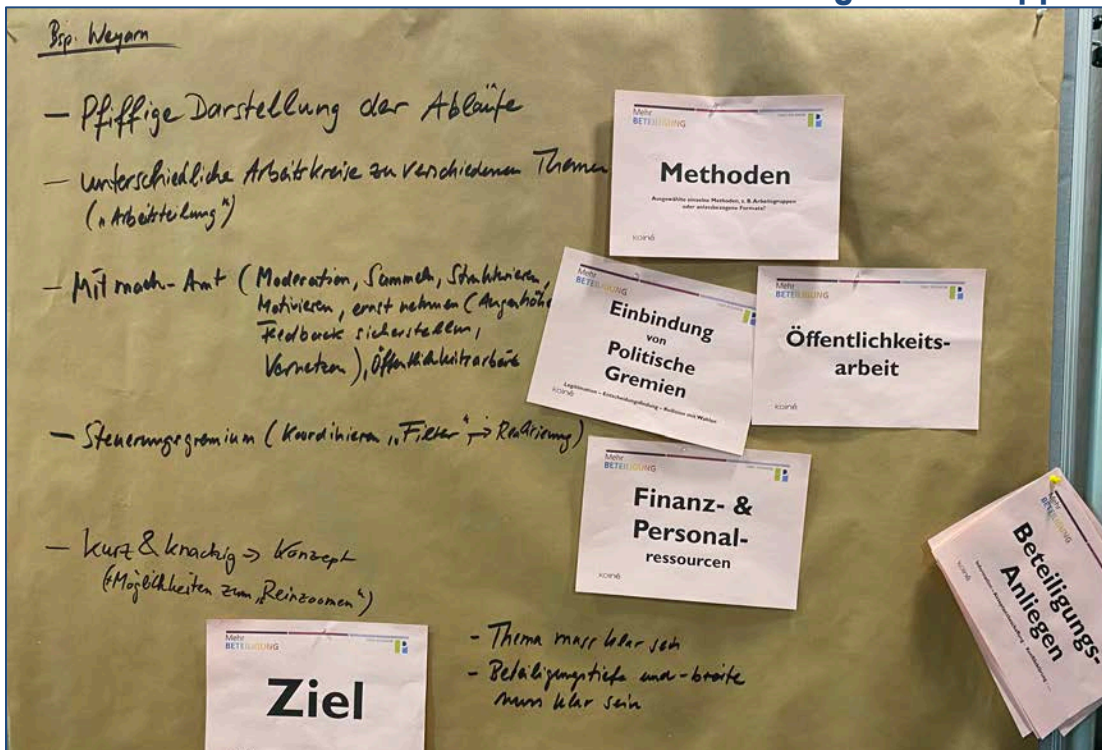 Bsp. Weyarn
- Pfiffige Darstellung der Abläufe
- unterschiedliche Arbeitskreise zu verschiedenen Themen
("Arbeitsteilung")
- Mitmach-Amt (Moderation, Sammeln, Strukturieren,
Motivieren, ernst nehmen (Augenhöhe
Feedback sicherstellen,
Vernetzen), Öffentlichkeitsarbeit
- Steuerungsgremium (Koordinieren, "Filter" → Realisierung)
- kurz & knackig → Konzept
(+Möglichkeiten zum "Reinzoomen")
Mehr
BETEILIGUNG
Methoden
Ausgewählte einzelne Methoden, z. B. Arbeitsgruppen
oder anlassbezogene Formate?
KOINÉ
Mehr
BETEILIGUNG
Einbindung
von
Politische
Gremien
Legitimation – Entscheidungsfindung – Kollision mit Wahlen
KOINÉ
Mehr
BETEILIGUNG
Öffentlichkeits-
arbeit
KOINÉ
Mehr
BETEILIGUNG
Finanz- &
Personal-
ressourcen
KOINÉ
Mehr
BETEILIGUNG
Beteiligungs-
Anliegen
KOINÉ
Mehr
BETEILIGUNG
Ziel
- Thema muss klar sein
- Beteiligungstiefe und -breite
muss klar sein